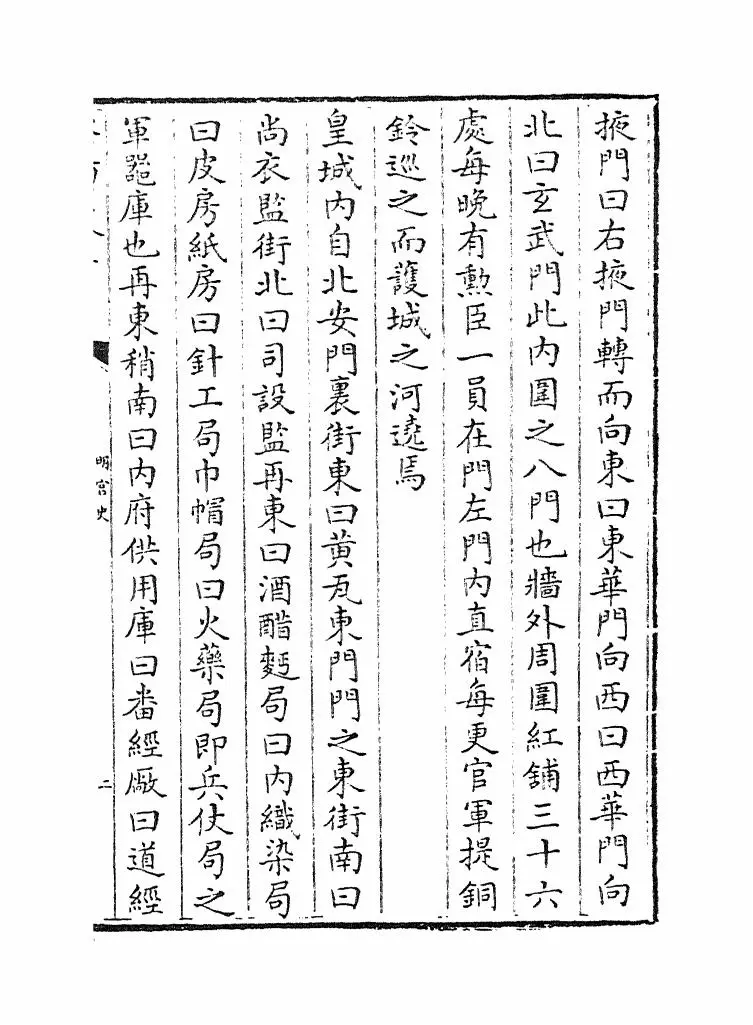 掖門曰右掖門轉而向東曰東華門向西曰西華門向
北曰玄武門此内圍之八門也牆外周圍紅舖三十六
處每晚有勲臣一員在門左門内直宿每更官軍提銅
鈴巡之而護城之河遶焉
皇城内自北安門裏街東曰黄瓦東門門之東街南曰
尚衣監街北曰司設監再東曰酒醋麫局曰内織染局
曰皮房紙房曰針工局巾帽局曰火藥局即兵仗局之
軍器庫也再東稍南曰内府供用庫曰畨經厰曰道經
明宫史
二